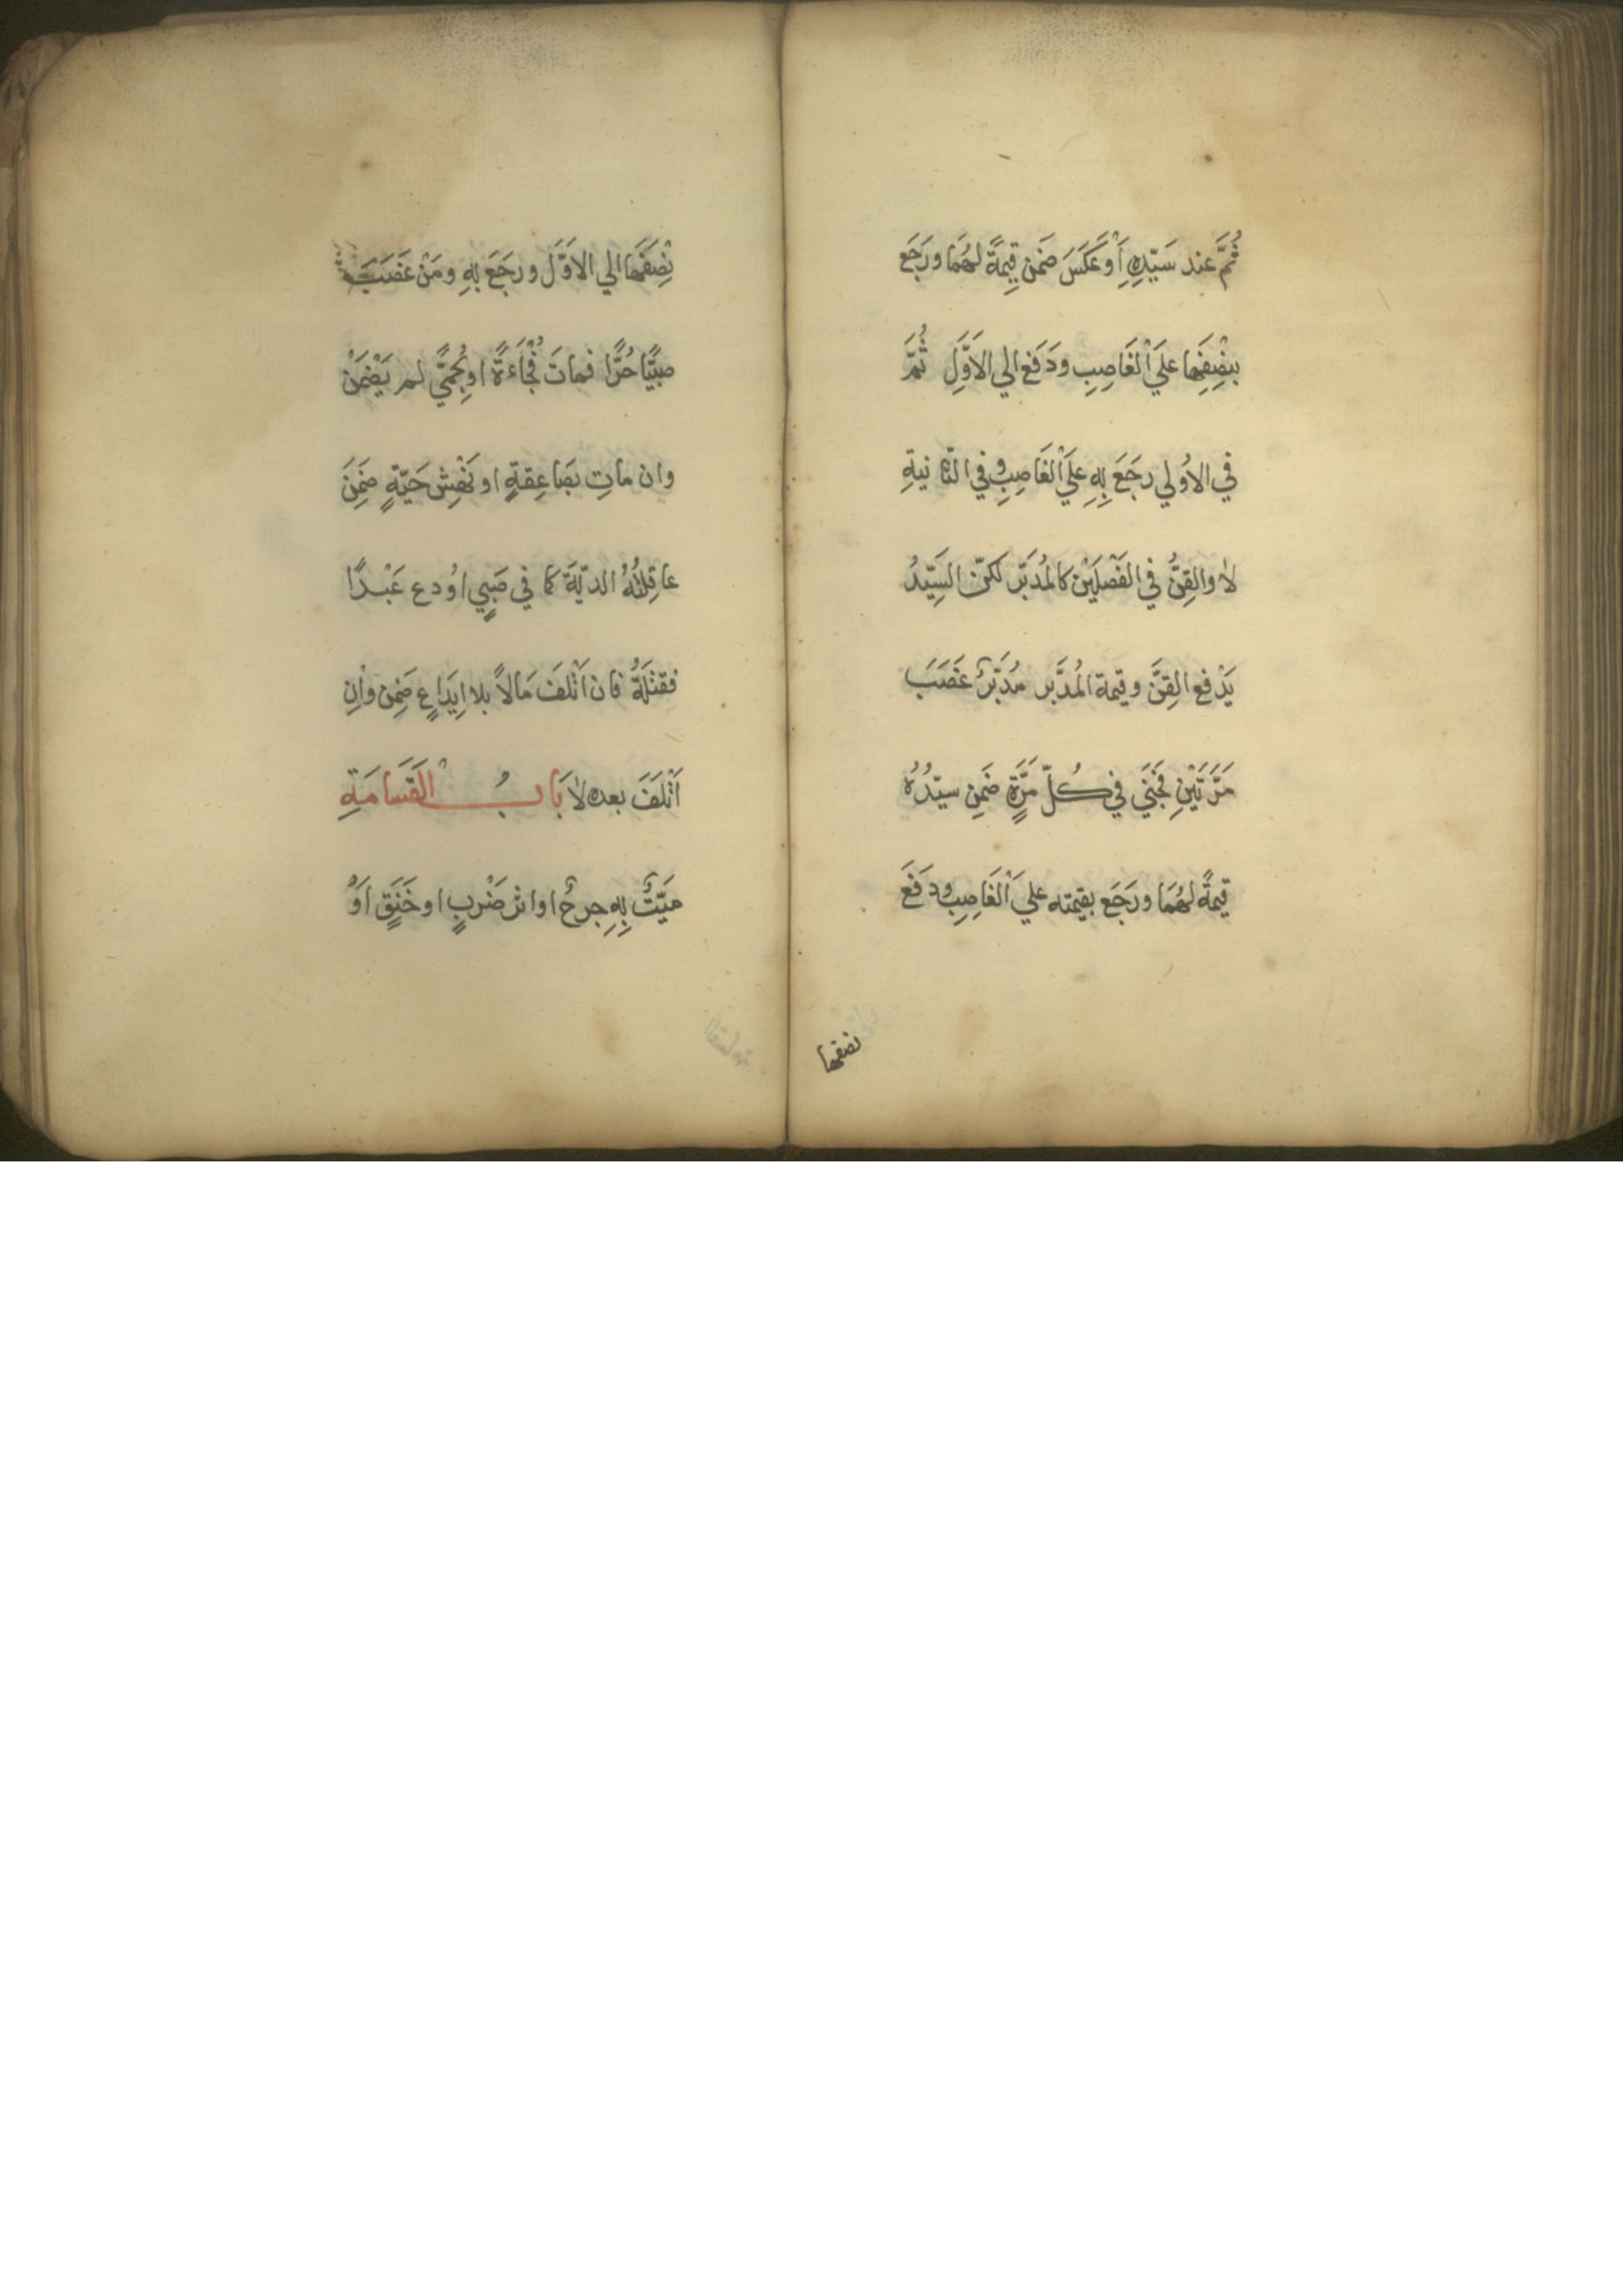 ثُمَّ عند سَيّدِهِ أَوْ عَكَسَ ضَمن قِيمَةً لهُمَا ورَجَع
بِنِصْفِهَا عَلَي الْغَاصِبِ ودَفَع الي الاَوَّلِ ثُمَّ
في الاُولي رجَعَ بِهِ عَلَي الْغَاصِبِ وفي الثانيةِ
لا والقِنُّ في الفَصْلَيْن كالمُدبَّر لكنّ السَيِّدُ
يَدْفع القِنَّ وقيمة المُدَبَّر مُدَبَّرٌ غَصَبَ
مَرَّتَيْنِ فَجَنَي في كُلِّ مَرَّةٍ ضَمِن سيّدُهُ
قيمةً لهُمَا ورَجَع بقيمته علي الْغَاصِبِ ودَفَعَ
نصفها
نِصْفَهَا الي الاَوَّل ورجَعَ بِهِ ومَنْ غَصَبَ
صبيًّا حُرًّا فماتَ فُجْاَءةً او بِحُمَّي لم يَضْمَنْ
وان ماتِ بصَاعِقةٍ او نَهْشِ حَيّةٍ ضَمِنَ
عاقِلَتُهُ الديّةَ كما في صَبِيٍ اوُدع عَبْدًا
فقتلَهُ فان اَتْلفَ مَالاً بلا اِيدَاعٍ ضَمِن واِن
اَتْلَفَ بعده لا بَابُ القَسَامَةِ
ميّتٌ بِهِ جرحٌ او اثر ضَرْبٍ او خَنَقٍ اَوْ